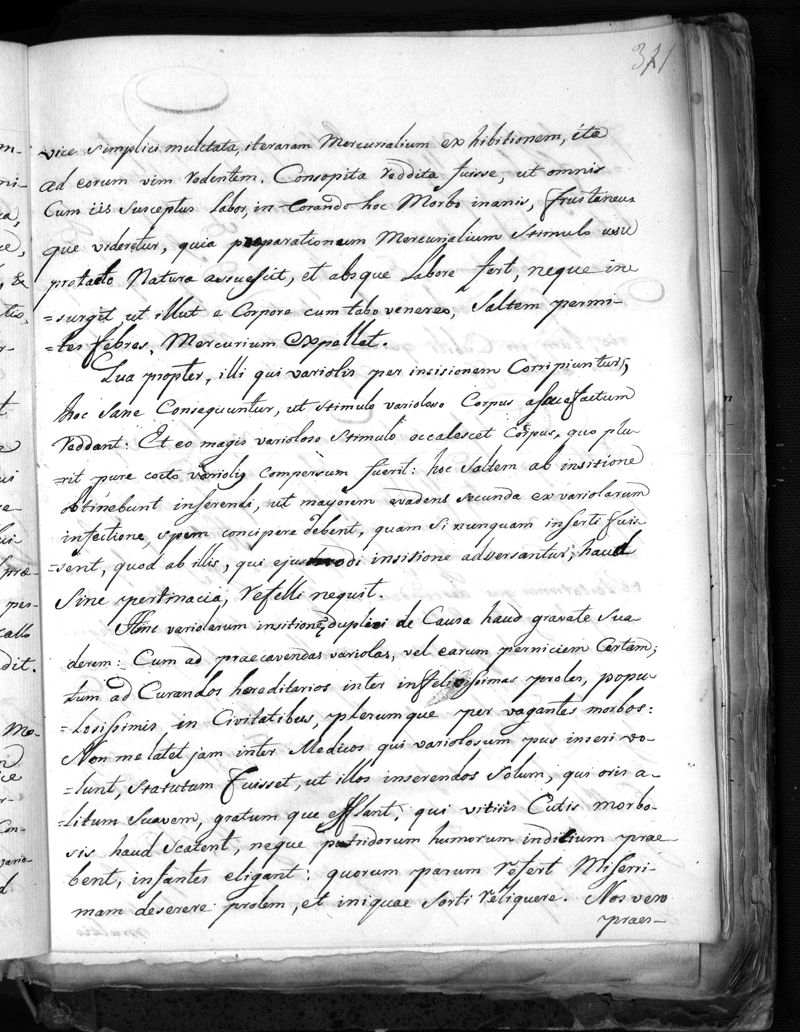 321
vice simplici mulctata, iteraram Mercurialium exhibitionem, ita
ad eorum vim rodentem. Consopita reddita fuisse, ut omnis
Cum iis susceptus Labor, in Corando hoc Morbo inanis, frustaneus
que videretur, quia præparationum Mercurialium Stimulo usu
protacto Natura assuescit, et absque Labore fert, neque in
=surgit ut illut e Corpore cum tabo venereo, Saltem permi-
=tes febres, Mercurium expellet.
Qua propter, illi qui variolis per insisionem Corripiuntur,
hoc Sane Consequuntur, ut stimulo varioloso Corpus assuefactum
reddant: Et eo magis varioloso Stimulo occalescet Corpus, quo plu-
=rit pure cocto variolis Compersum fuerit: hoc Saltem ab insitione
obtinebunt inserendi, ut mayorem evadens secunda ex variolarum
infectione, spem concipere debent, quam si nunquam inserti fuis
=sent, quod ab illis, qui ejusmodi insisione adversantur, haud
Sine pertinacia, refelli nequit.
Hinc variolarum insitione duplexi de Causa haud gravate Sua
derem: Cum ad praecavendas variolas, vel earum perniciem Certam;
tum ad Curandos hereditarios inter infelicissimas proles, popu
=losissimis in Civitatibus, plerumque per vagantes morbos:
Non me latet jam inter Medicos qui variolosum pus inseri vo-
=lunt, statutum fuisset, ut illos inserendos Solum, qui oris a-
=litum Suavem, gratum que efflant, qui vitiis Cutis morbo-
sis haud Scatent, neque putridorum humorum indicium prae
bent, infantes eligant: quorum parum refert Miserri-
mam deserere prolem, et iniquae Sorti reliquere. Nos vero
praes-